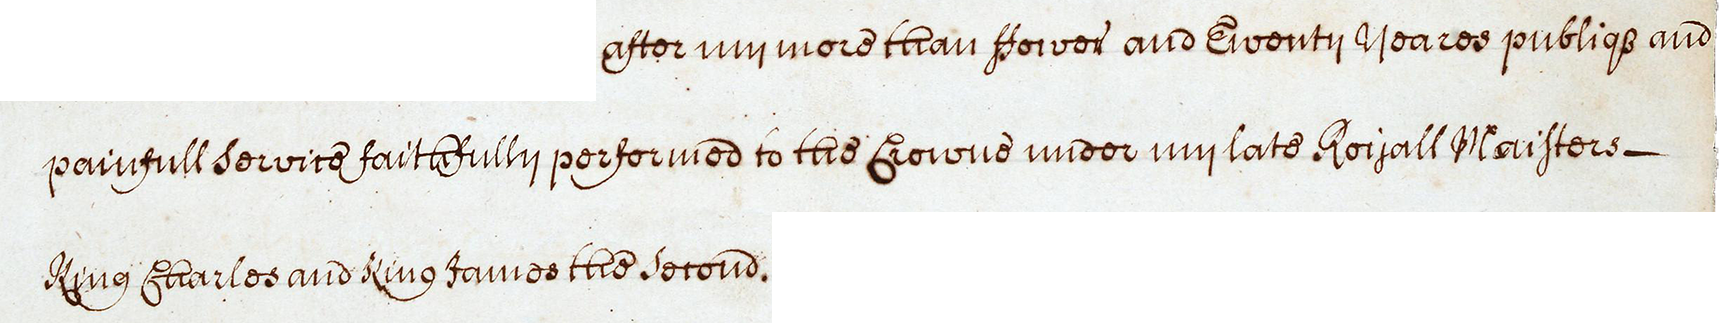 after my more than ffower and Twenty Yeares publiqs and
painfull Service faithfully performed to the Crowne under my late Royall Maisters
King Charles and King James the Second.